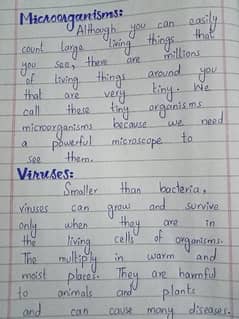 Microorganisms:
Although you can easily
count large living things that
you see, there are millions
of living things around you
that are very tiny. We
call these tiny organisms
microorganisms because we need
a powerful microscope to
see them.
Viruses:
Smaller than bacteria,
viruses can grow and survive
only when they are in
the living cells of organisms.
The multiply in warm and
moist places. They are harmful
to animals and plants
and can cause many diseases.